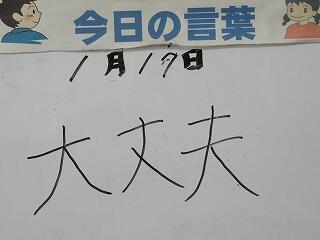 今日の言葉
1月17日
大丈夫